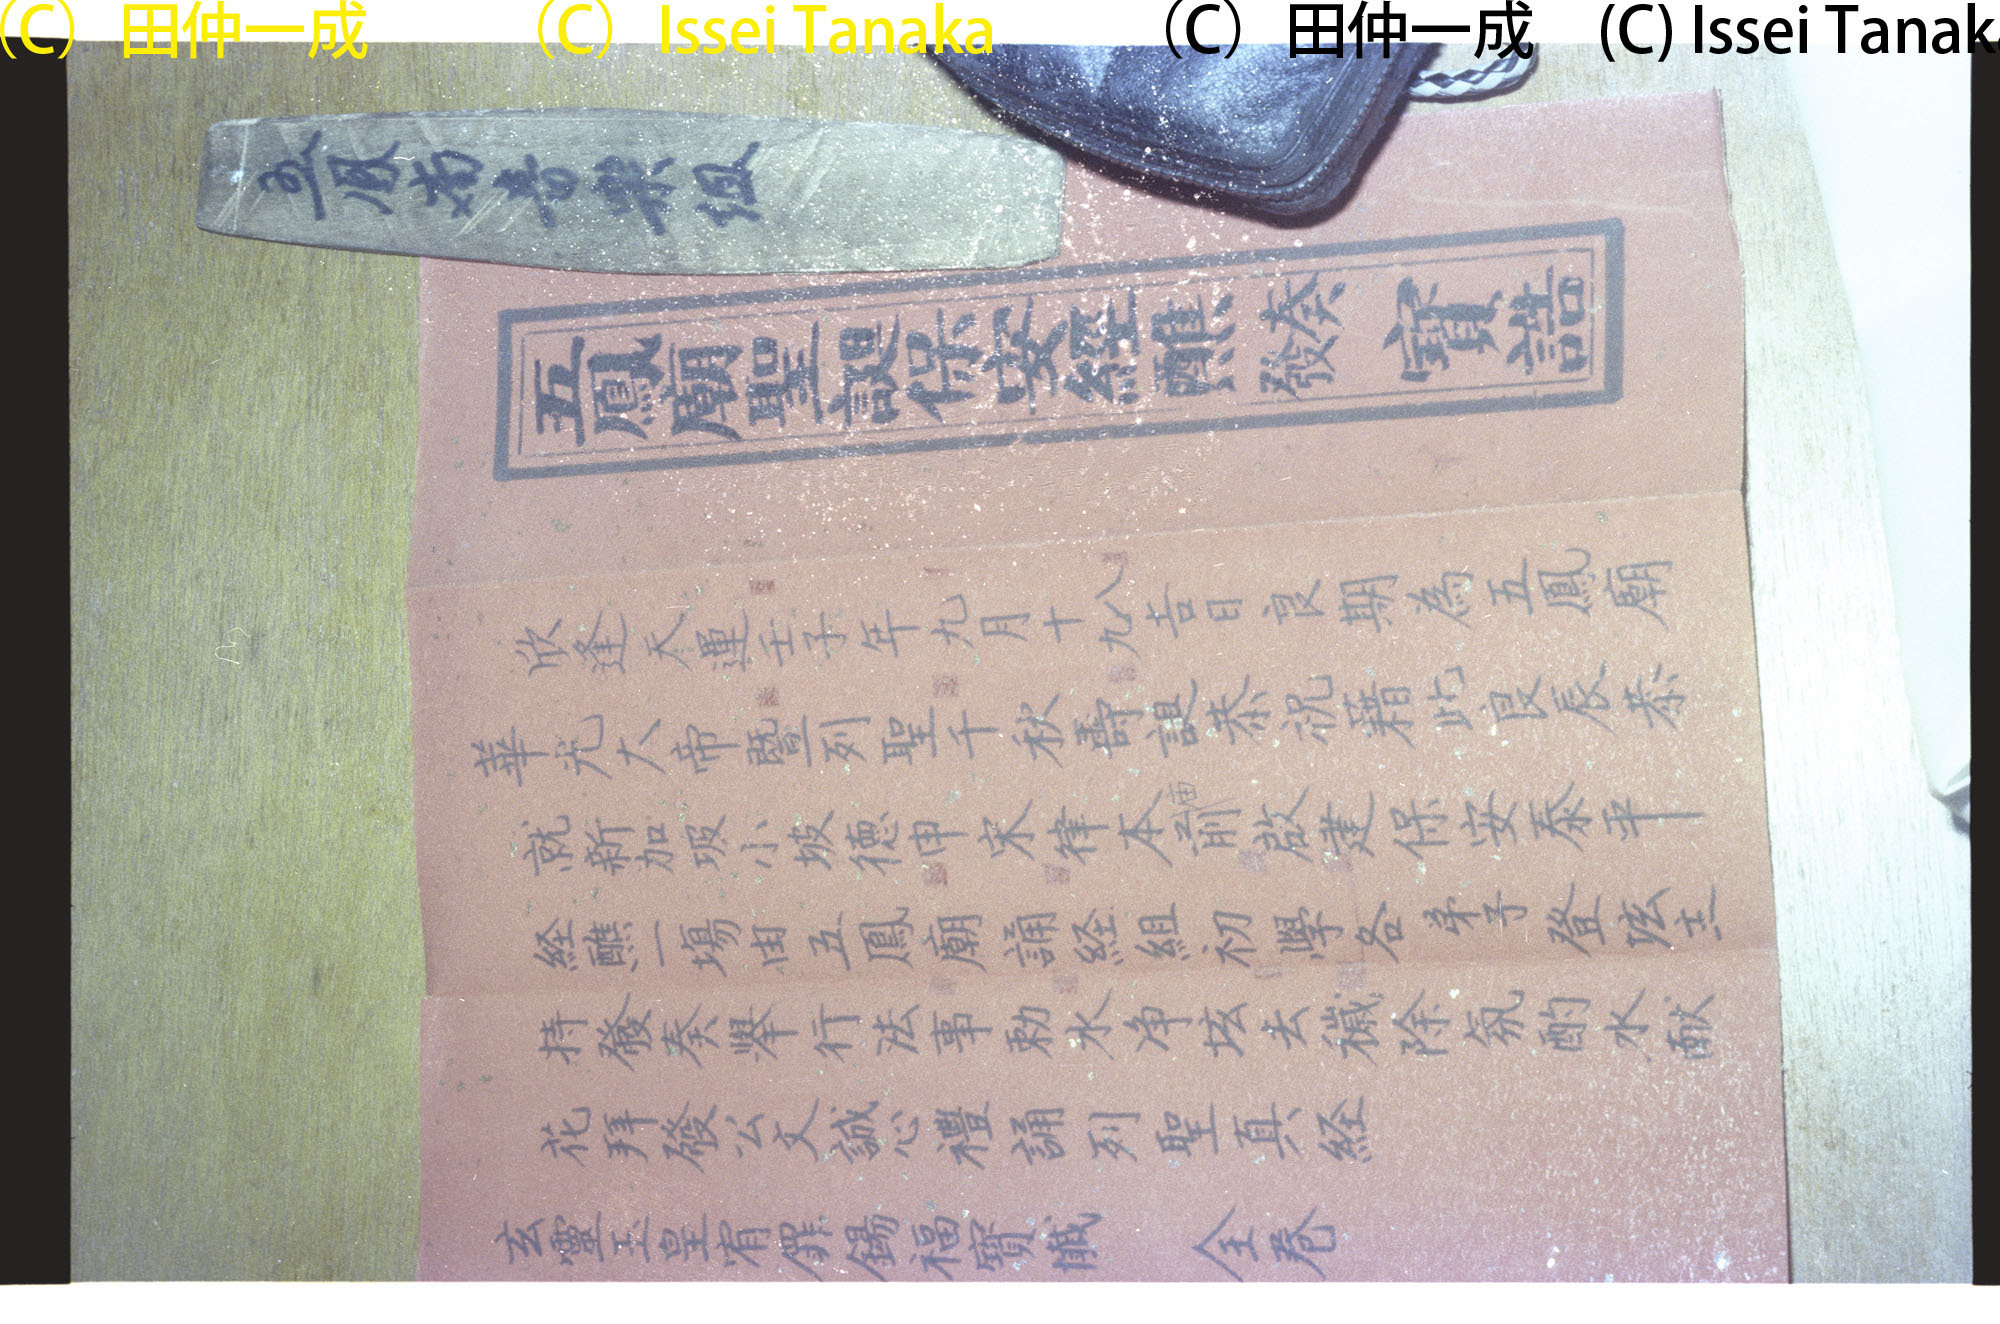 (C) 田仲一成 (C) Issei Tanaka (C) 田仲一成 (C) Issei Tanaka
音樂組
五鳳廟聖誕保安經醮發奏寶誥
欣逢天運壬子年九月十八九吉日良期為五鳳廟
華光大帝暨列聖千秋壽誕恭祝藉此良辰恭
就新加坡小坡德申宋律本廟前啟建保安泰平
経醮一場由五鳳廟誦経組初學各弟子登玹主
持發奏舉行法事勅水净玹去穢除氛酌水獻
花拜發公文誠心禮誦列聖真経
玄靈玉皇宥罪錫福寶懺 全卷